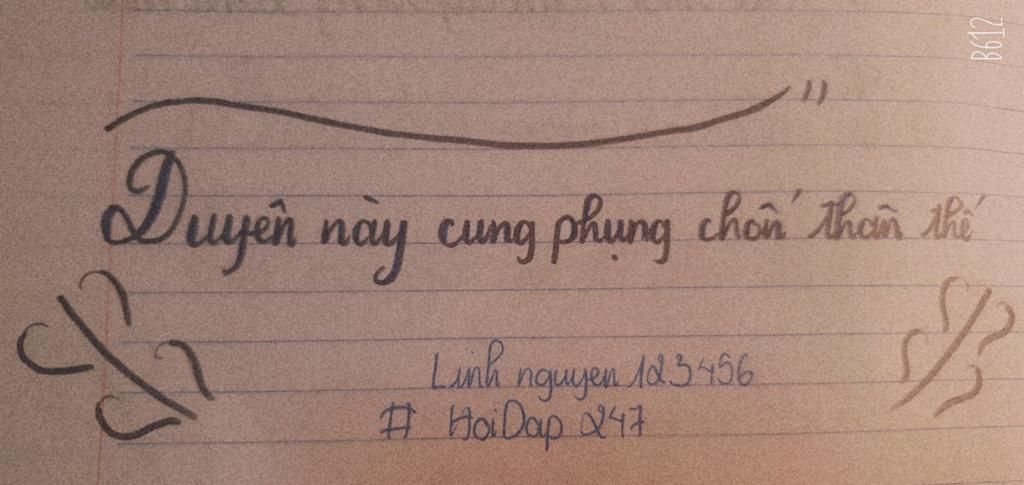 Duyên này cung phụng chốn thần thế
Linh nguyen 123456
# HoiDap 247
B612